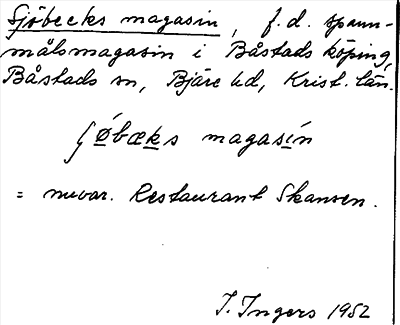 Sjöbecks magasin, f.d. spann-
målsmagasin i Båstads köping,
Båstads sn, Bjäre hd, Krist. län.
ʃøbæks magasín
= nuvar. Restaurant Skansen.
I. Ingers 1952